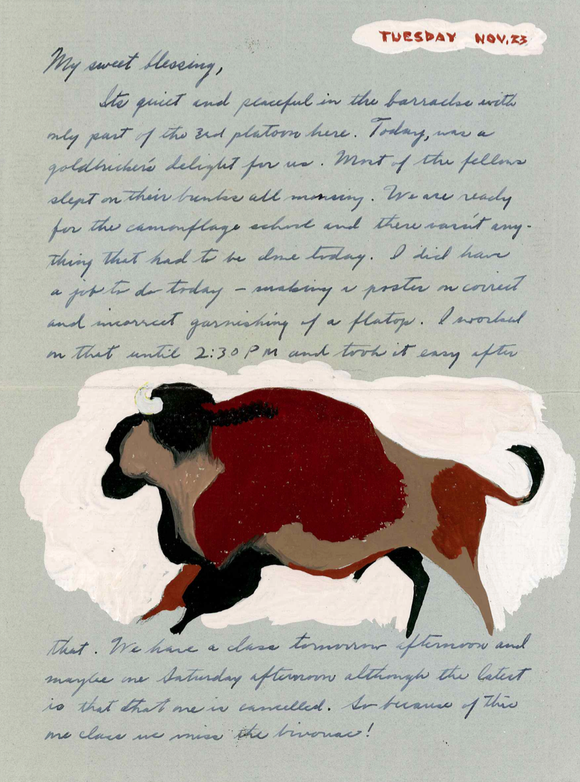 TUESDAY NOV. 23
My sweet blessing,
Its quiet and peaceful in the barracks with
only part of the 3rd platoon here. Today, was a
goldbricker's delight for us. Most of the fellows
slept on their bunks all morning. We are ready
for the camouflage school and there wasn't any-
thing that had to be done today. I did have
a job to do today – making a poster on correct
and incorrect garnishing of a flatop. I worked
on that until 2:30 PM and took it easy after
that. We have a class tomorrow afternoon and
maybe one Saturday afternoon although the latest
is that that one is cancelled. So because of this
one class we miss the bivouac!